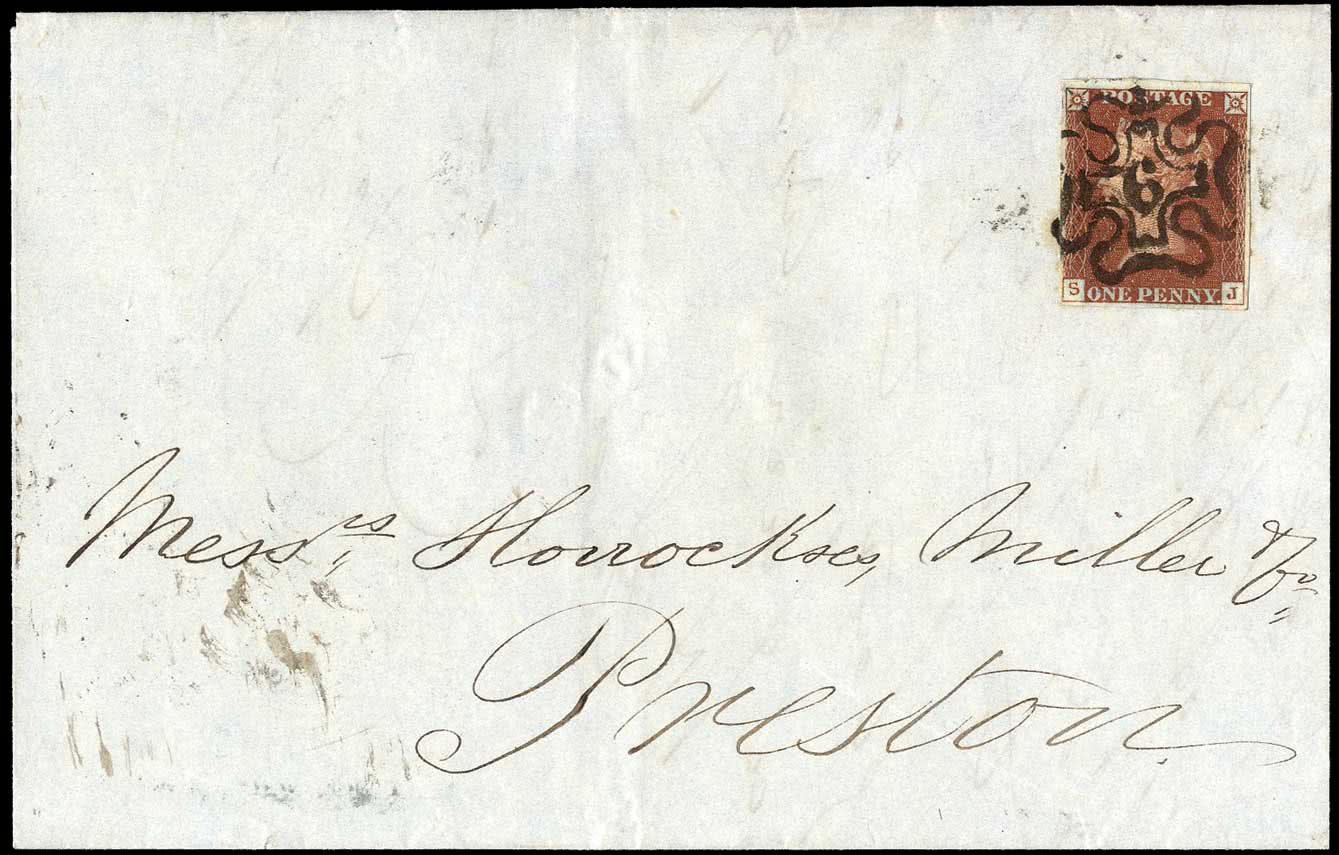 POSTAGE
6
S ONE PENNY. J
Messrs, Horrockses, Miller & Co
Preston